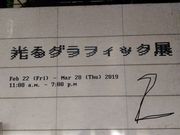 光るグラフィック展
2
Feb 22 (Fri) - Mar 28 (Thu) 2019
11:00 a.m. - 7:00 p.m